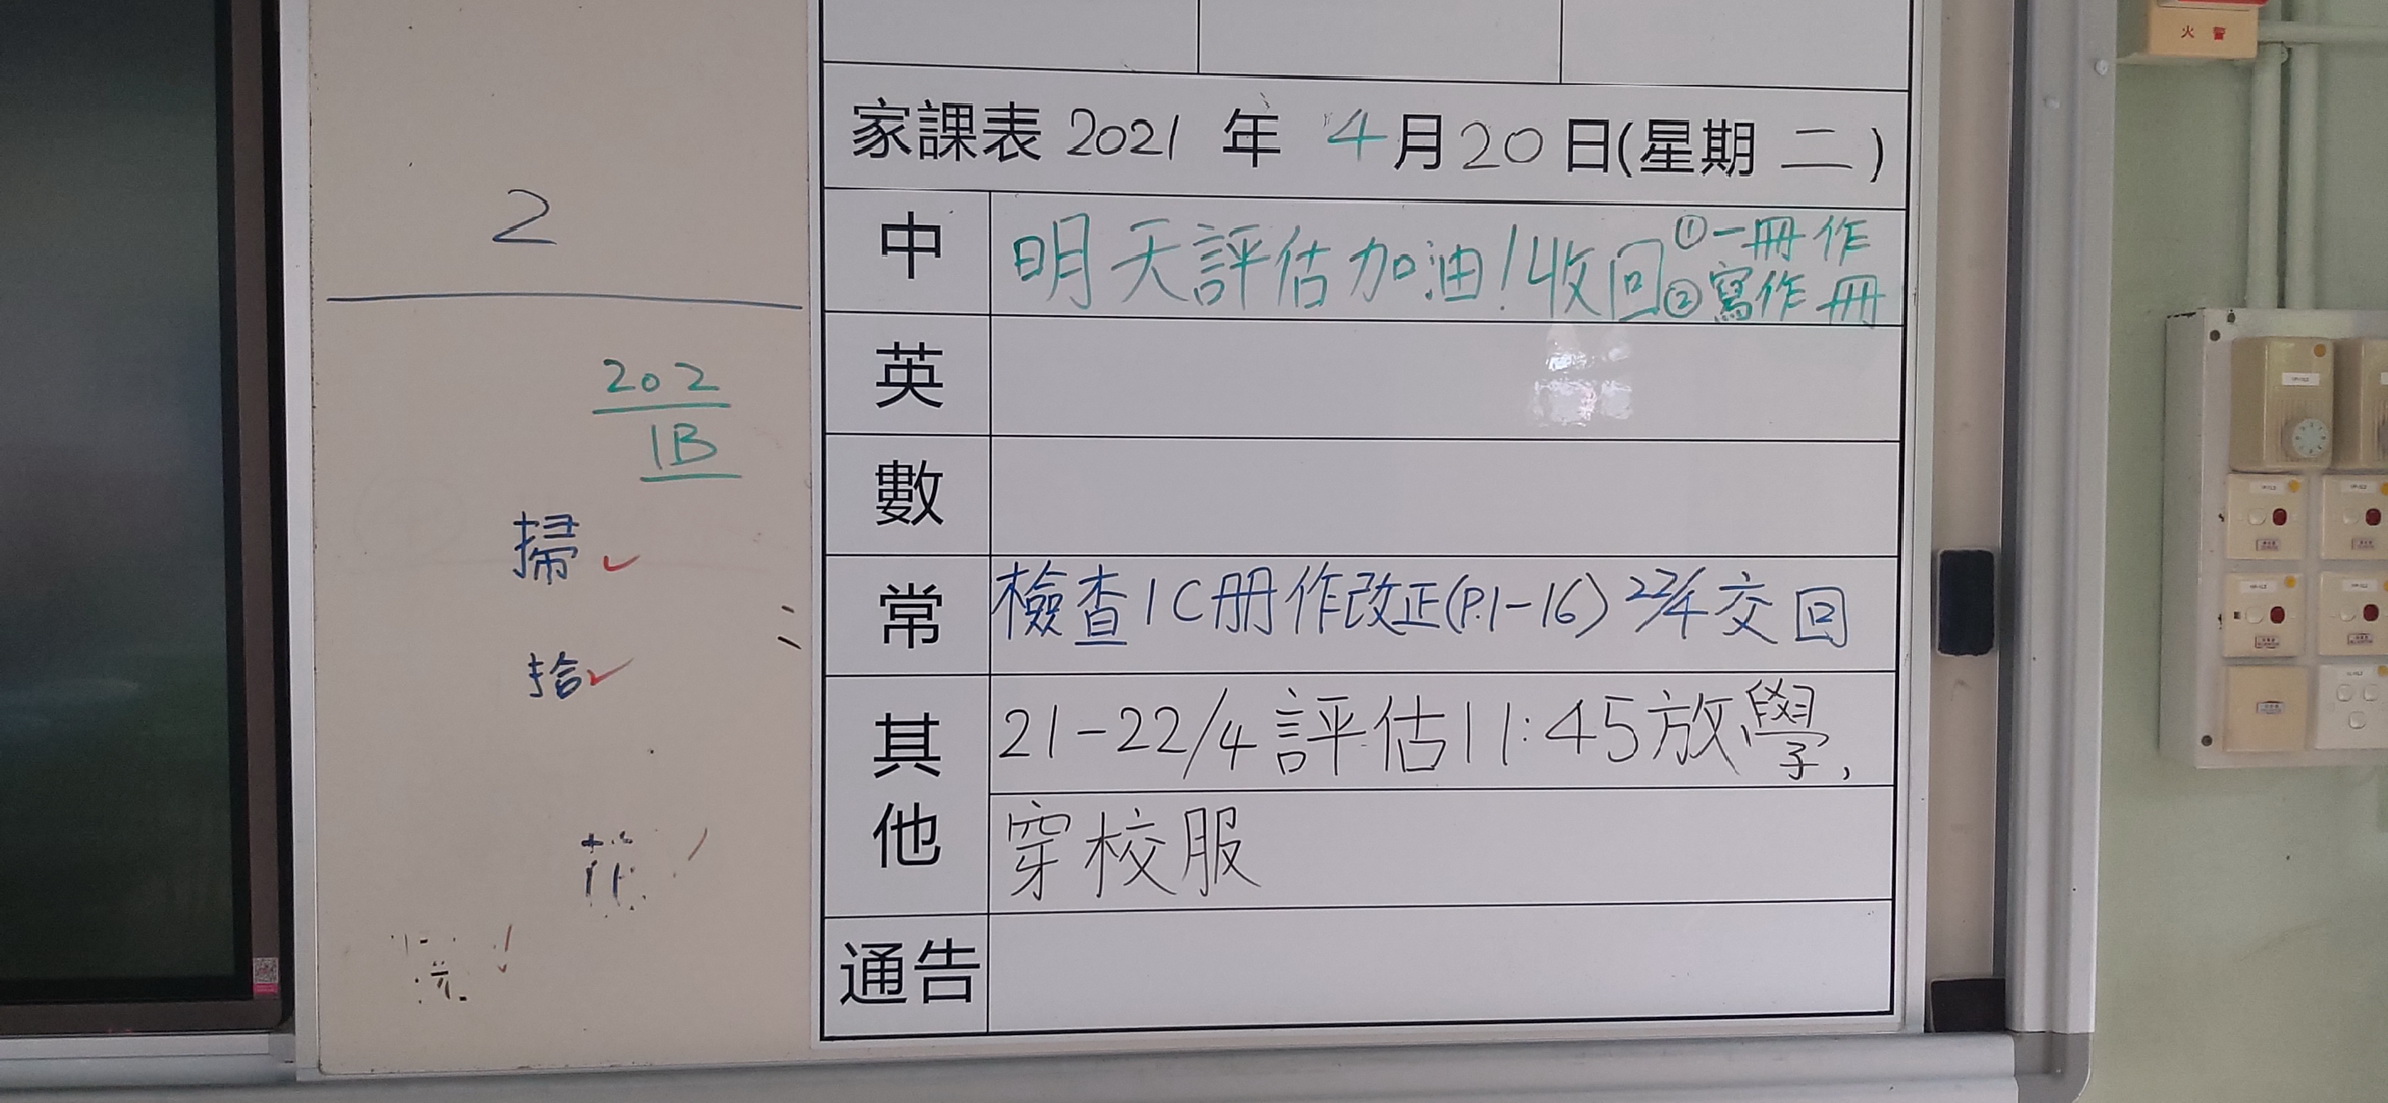 火警
家課表 2021 年 4月20日(星期 二)
中 明天評估加油!收回①一冊作
②寫作冊
英
數
常 檢查1C册作改正(P.1-16) 22/4 交回
其他 21-22/4 評估11:45放學,
穿校服
通告
2
202
1B
掃✓
拾✓